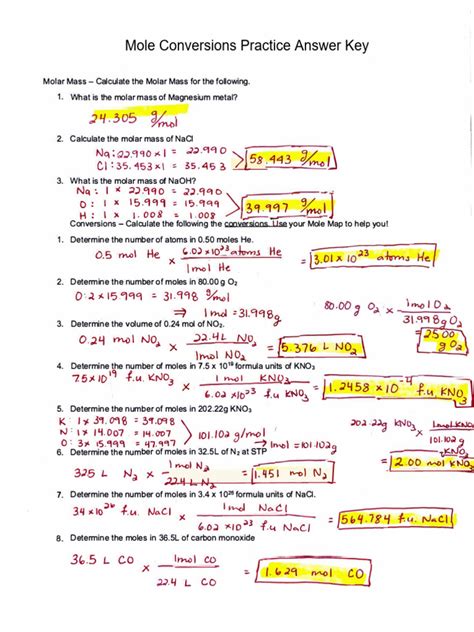 Mole Conversions Practice Answer Key
Molar Mass – Calculate the Molar Mass for the following.
1. What is the molar mass of Magnesium metal?
24.305 g/mol
2. Calculate the molar mass of NaCl
Na: 22.990 x 1 = 22.990
Cl: 35.453 x 1 = 35.453
58.443 g/mol
3. What is the molar mass of NaOH?
Na: 1 x 22.990 = 22.990
O: 1 x 15.999 = 15.999
H: 1 x 1.008 = 1.008
39.997 g/mol
Conversions – Calculate the following the conversions. Use your Mole Map to help you!
1. Determine the number of atoms in 0.50 moles He.
0.5 mol He x 6.02 x 10²³ atoms He
1mol He
= 3.01 x 10²³ atoms He
2. Determine the number of moles in 80.00 g O₂
O: 2 x 15.999 = 31.998 g/mol
→ 1mol = 31.998g
80.00 g O₂ x 1mol O₂
31.998g O₂
= 2500 g O₂
3. Determine the volume of 0.24 mol of NO₂.
0.24 mol NO₂ x 22.4L NO₂
1mol NO₂
= 5.376 L NO₂
4. Determine the number of moles in 7.5 x 10¹⁹ formula units of KNO₃
7.5 x 10¹⁹ f.u. KNO₃ x 1mol KNO₃
6.02 x 10²³ f.u. KNO₃
= 1.2458 x 10⁻⁴ f.u. KNO₃
5. Determine the number of moles in 202.22g KNO₃
K: 1 x 39.098 = 39.098
N: 1 x 14.007 = 14.007
O: 3 x 15.999 = 47.997
101.102 g/mol
→ 1mol = 101.102g
202.22g KNO₃ x 1mol KNO₃
101.102 g KNO₃
= 2.00 mol KNO₃
6. Determine the number of moles in 32.5L of N₂ at STP
325 L N₂ x 1mol N₂
22.4L N₂
= 1.451 mol N₂
7. Determine the number of moles in 3.4 x 10²⁶ formula units of NaCl.
34 x 10²⁶ f.u. NaCl x 1mol NaCl
6.02 x 10²³ f.u. NaCl
= 564.784 f.u. NaCl
8. Determine the moles in 36.5L of carbon monoxide
36.5 L CO x 1mol CO
22.4 L CO
= 1.629 mol CO